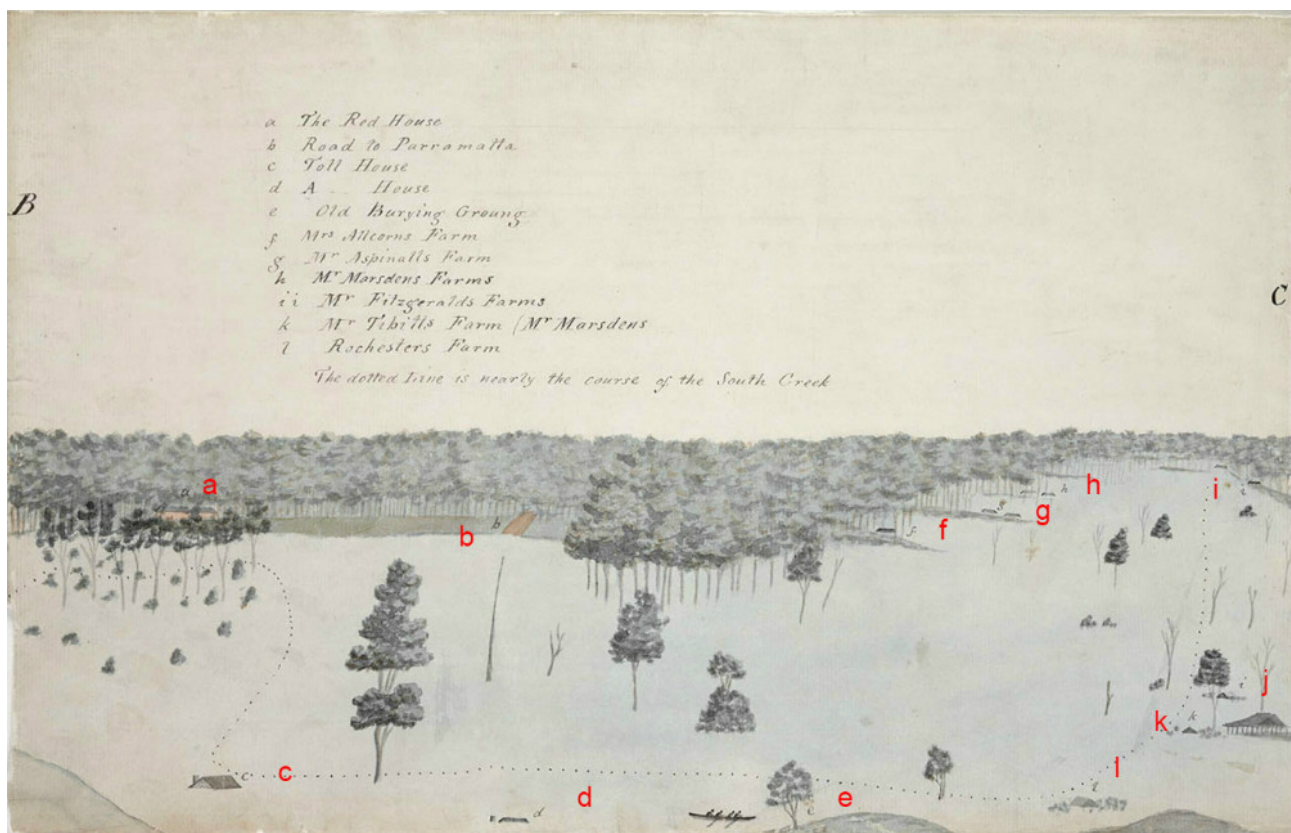 a The Red House
b Road to Parramatta
c Toll House
B
d A .. House
e Old Burying Groung
f Mrs Allcorns Farm
g Mr Aspinalls Farm
h Mr Marsdens Farms
C
ii Mr Fitzgeralds Farms
k Mr Tibitts Farm (Mr Marsdens
l Rochesters Farm
The dotted Line is nearly the course of the South Creek
a a
h h i i
g g
b b f f
j i
k k
c c l l
d d e e